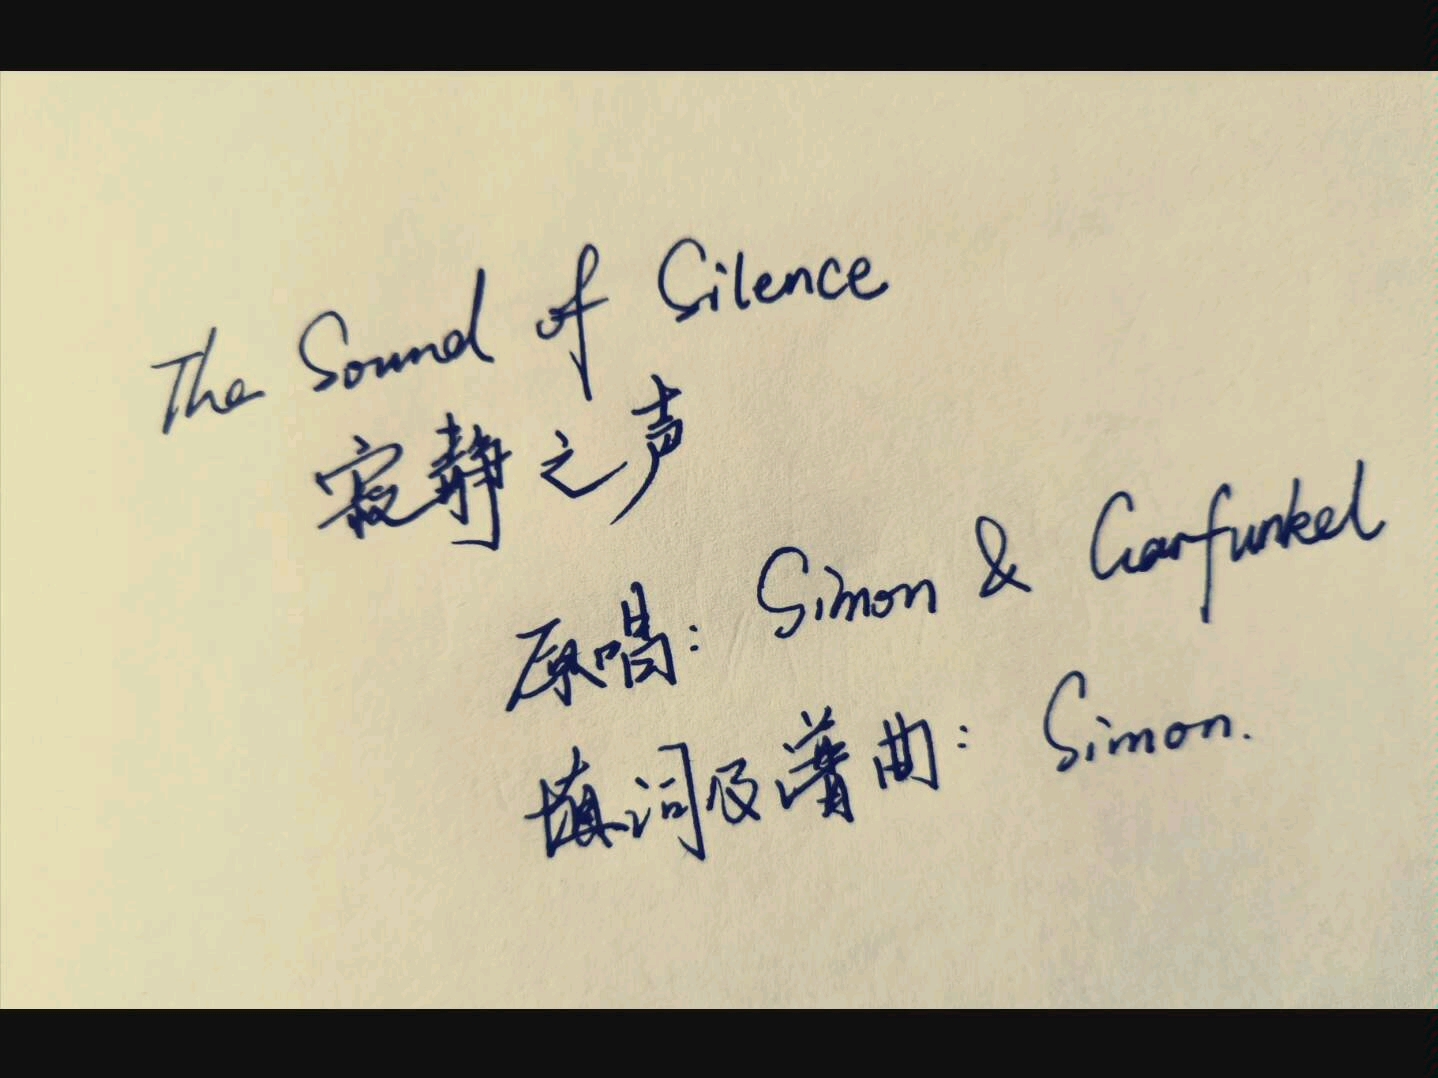 The Sound of Silence
寂静之声
原唱: Simon & Garfunkel
填词及谱曲: Simon.